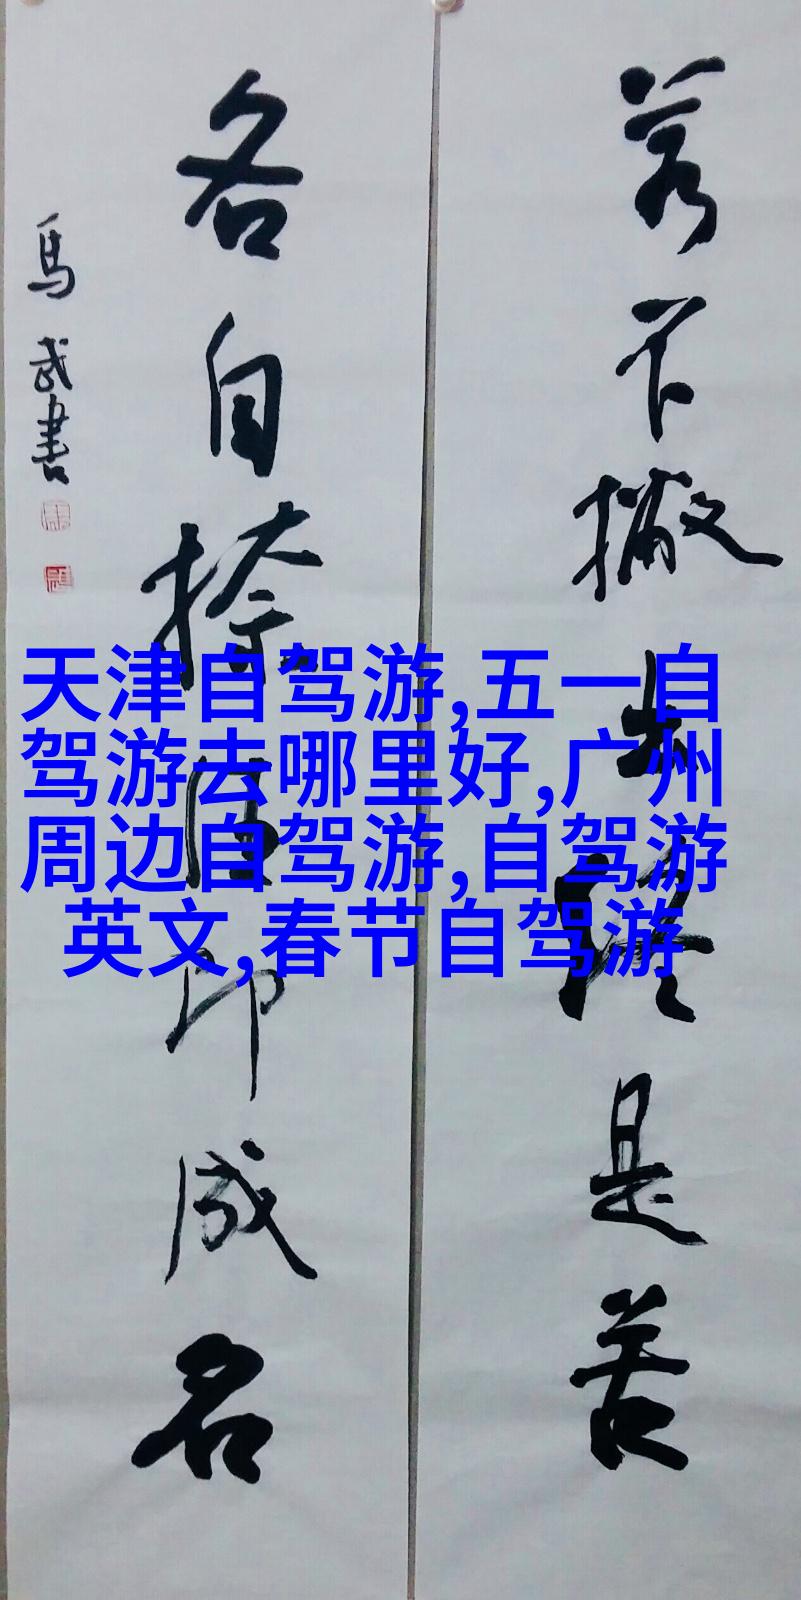 若不撇终是苦
各自捺住即成名
馬武書
天津自驾游,五一自
驾游去哪里好,广州
周边自驾游,自驾游
英文,春节自驾游